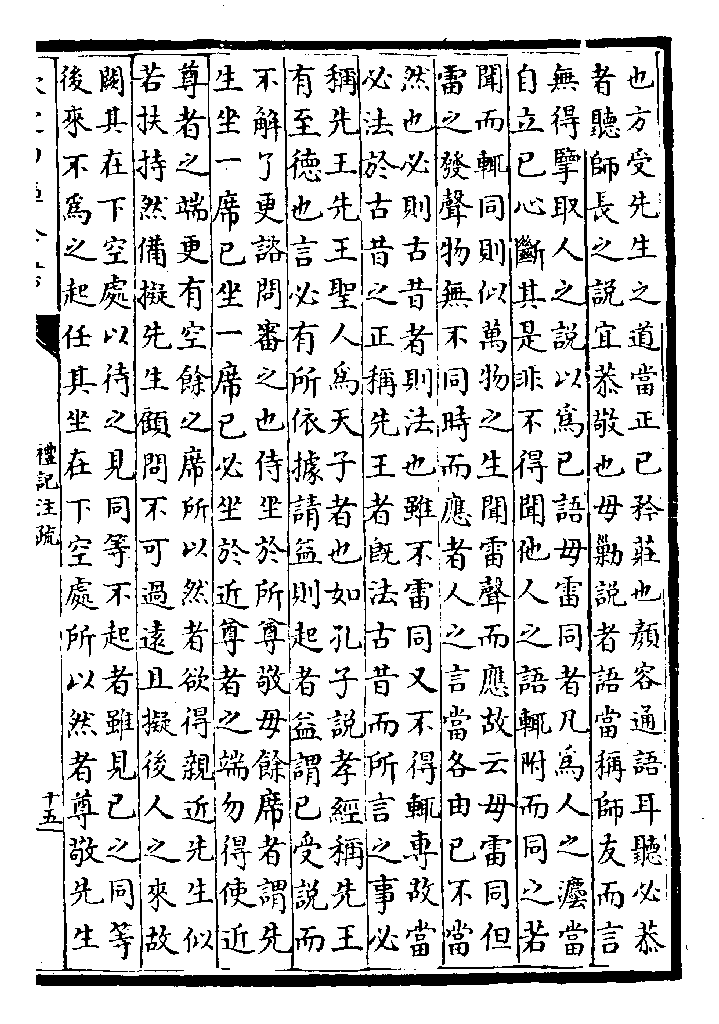 也方受先生之道當正已矜莊也顏容通語耳聽必恭
者聽師長之說宜恭敬也毋勦說者語當稱師友而言
無得擥取人之說以為已語毋雷同者凡為人之灋當
自立已心斷其是非不得聞他人之語輒附而同之若
聞而輒同則似萬物之生聞雷聲而應故云毋雷同但
雷之發聲物無不同時而應者人之言當各由已不當
然也必則古昔者則法也雖不雷同又不得輒專故當
必法於古昔之正稱先王者既法古昔而所言之事必
稱先王先王聖人為天子者也如孔子說孝經稱先王
有至德也言必有所依據請益則起者益謂已受說而
不解了更諮問審之也侍坐於所尊敬毋餘席者謂先
生坐一席已坐一席已必坐於近尊者之端勿得使近
尊者之端更有空餘之席所以然者欲得親近先生似
若扶持然備擬先生顧問不可過遠且擬後人之來故
闕其在下空處以待之見同等不起者雖見已之同等
後來不為之起任其坐在下空處所以然者尊敬先生
禮記注疏
十五